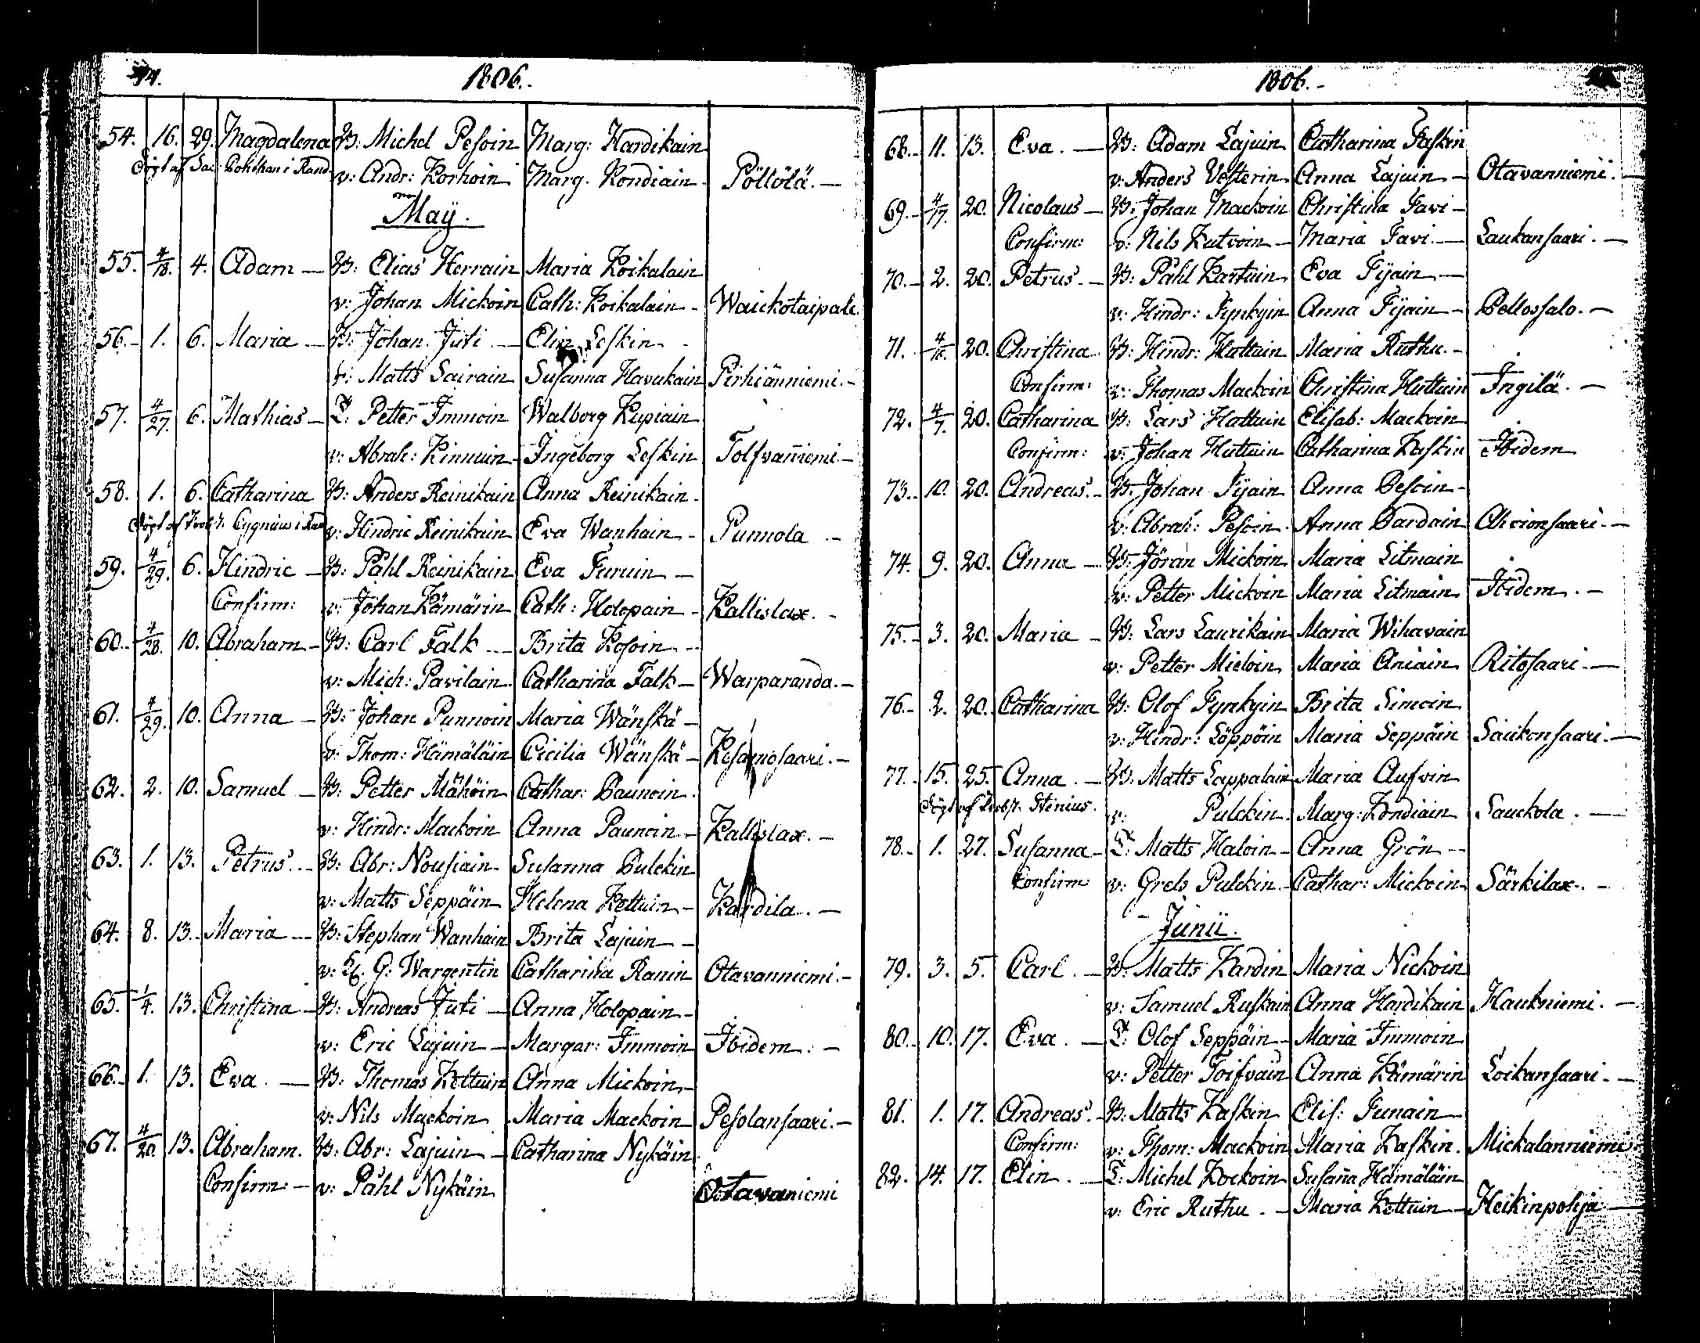 44. 1806.
54. 16. 29. Magdalena B: Michel Pesoin Marg: Hardikain
Döpt af Sac: v: Andr: Korhoin Marg. Kondiain Pöllölä. —
Maÿ.
55. 4/18. 4. Adam — B: Elias Herrain Maria Koikalain
v: Johan Mickoin Cath: Koikalain - Waickotaipale
56. 1. 6. Maria — B: Johan Juti — Elin Leskin -
v: Matts Sairain Susanna Havukain Pirhiänniemi. -
57. 4/27. 6. Mathias — T: Petter Immoin Walborg Kupiain
v: Abrah: Kinnuin - Ingeborg Leskin Tolfvanniemi —
58. 1. 6. Catharina B: Anders Reinikain Anna Reinikain -
Döpt af Cygnæus i v: Hindric Reinikain Eva Wanhain - Punnola -
59. 4/29. 6. Hindric — B: Påhl Reinikain Eva Turuin —
Confirm: v: Johan Kämärin Cath: Holopain - Kallislax. -
60. 4/28. 10. Abraham — B: Carl Falk — Brita Kosoin -
v: Mich: Pavilain Catharina Falk — Warparanda. —
61. 4/29. 10. Anna — B: Johan Punnoin Maria Wänskä —
v: Thom: Hämäläin Cicilia Wänskä — Kesamosaari. —
62. 2. 10. Samuel — B: Petter Mähöin Cathar: Paunoin.
v: Hindr: Mackoin Anna Paunoin — Kallislax. —
63. 1. 13. Petrus. — B: Abr: Nousiain - Susanna Pulckin
v: Matts Seppäin Helena Kettuin - Kardila. —
64. 8. 13. Maria — B: Stephan Wanhain Brita Lajuin -
v: G: Wargentin Catharina Ranin Otavanniemi. -
65. 1/4. 13. Christina — B: Andreas Juti — Anna Holopain -
v: Eric Lajuin — Margar: Immoin Ibidem. —
66. 1. 13. Eva. — B: Thomas Kettuin Anna Mickoin -
v: Nils Mackoin Maria Mackoin Pesolansaari. -
67. 4/20. 13. Abraham. B: Abr: Lajuin — Catharina Nykäin
Confirm: — v: Påhl Nykäin Otavaniemi
1806. -
68. 11. 13. Eva. — B: Adam Lajuin Catharina Kaskin
v: Anders Vesterin Anna Lajuin — Otavanniemi. -
69. 4/17. 20. Nicolaus — B: Johan Mackoin Christina Tavi —
Confirm: v: Nils Kutvoin — Maria Tavi — Laukansaari. —
70. 2. 20. Petrus — B: Påhl Karttuin Eva Tijain —
v: Hindr: Tynkyin Anna Tijain — Pellossalo. —
71. 20. Christina B: Hindr: Huttuin Maria Ruthu -
Confirm: v: Thomas Mackoin Christina Huttuin Ingilä. —
72. 4/7. 20. Catharina B: Lars Huttuin Elisab: Mackoin
Confirm: v: Johan Huttuin Catharina Kaskin Ibidem
73. 10. 20. Andreas. — B: Johan Tijain Anna Pesoin -
v: Abrah: Pesoin Anna Pardain Ahvionsaari. —
74. 9. 20. Anna — B: Jöran Mickoin Maria Litmain
v: Petter Mickoin Maria Litmain Ibidem. -
75. 3. 20. Maria — B: Lars Laurikain Maria Wihavain
v: Petter Mieloin Maria Aniain Ritosaari. —
76. 2. 20. Catharina B: Olof Tynkyin Brita Simoin
v: Hindr: Löppöin Maria Seppäin Saikonsaari. —
77. 15. 25. Anna. — B: Matts Lappalain Maria Aufvin
Döpt af Probst. Stenius. v: Pulckin Marg: Kondiain Sauckola. —
78. 1. 27. Susanna — T: Matts Haloin — Anna Grön -
Confirm v: Grels Pulckin Cathar: Mickoin Särkilax. -
Junii.
79. 3. 5. Carl. — B: Matts Kardin Maria Nickoin
v: Samuel Ruskain Anna Hardikain Haukniemi. —
80. 10. 17. Eva. — T: Olof Seppäin — Maria Immoin
v: Petter Toifvain Anna Kämärin Loikansaari. —
81. 1. 17. Andreas. — B: Matts Kaskin Elis: Tunain
Confirm: v: Thom: Mackoin Maria Kaskin. Mickalanniemi
82. 14. 17. Elin. — T: Michel Kockoin Susana Hämäläin
v: Eric Ruthu. — Maria Kettuin — Heikinpohja —